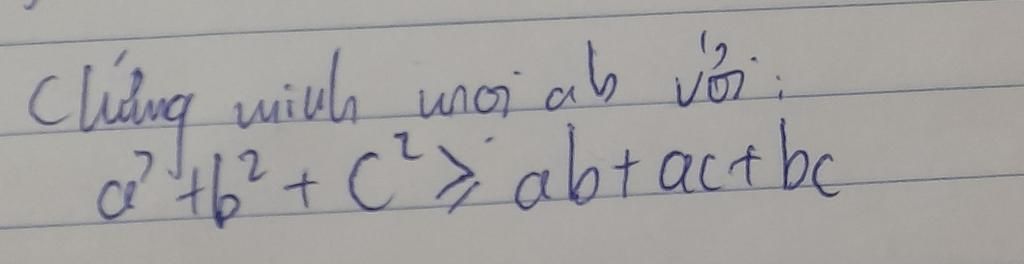 Chứng minh mọi ab với:
a² + b² + c² ≥ ab + ac + bc